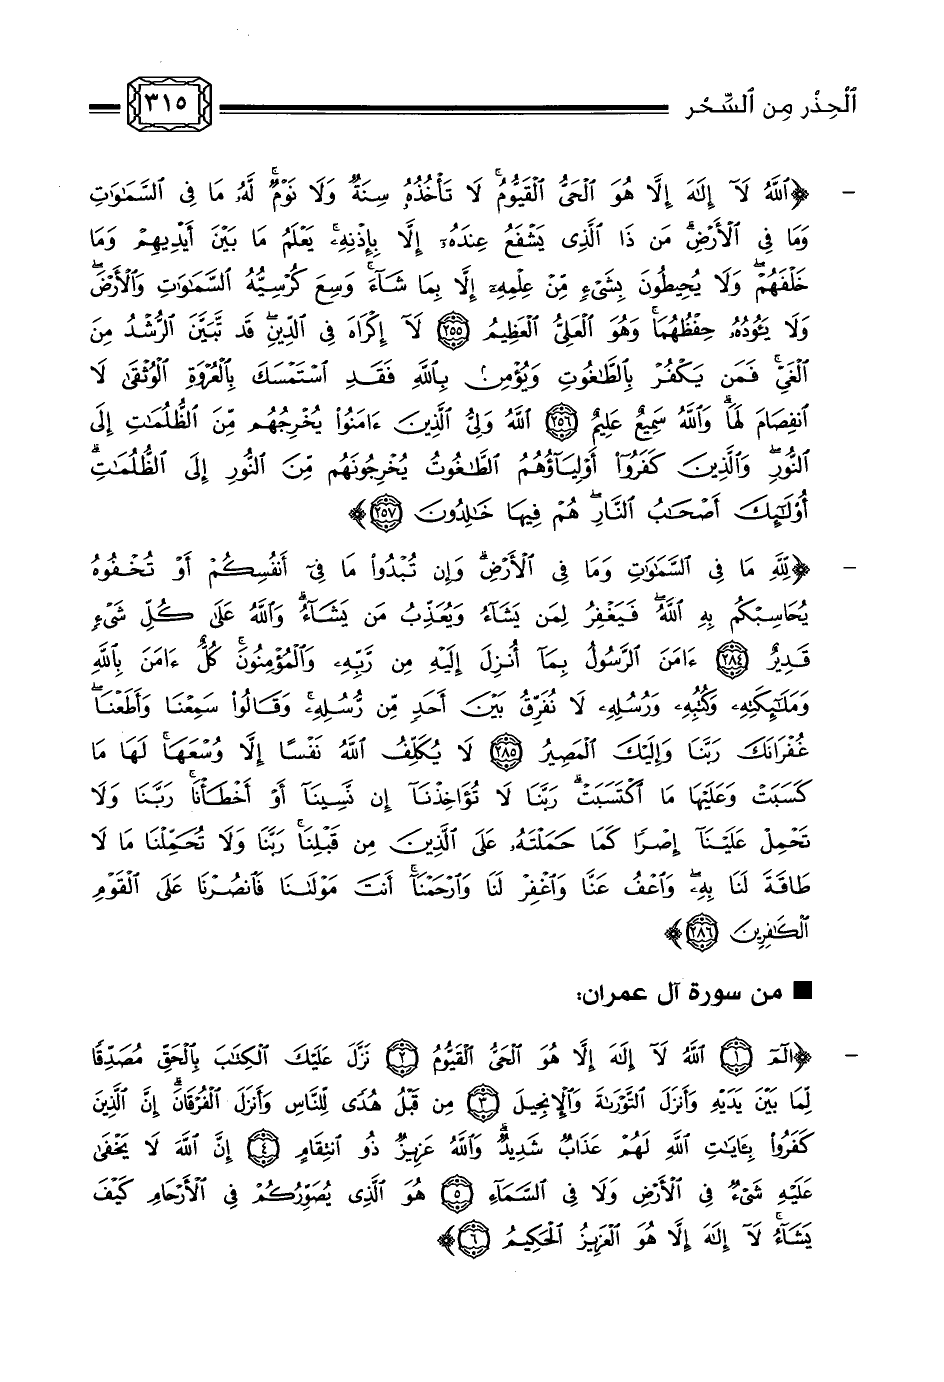 ٱلْحِذْر مِن ٱلسِّحْر ٣١٥
- ﴿ٱللَّهُ لَآ إِلَٰهَ إِلَّا هُوَ ٱلْحَىُّ ٱلْقَيُّومُ ۚ لَا تَأْخُذُهُۥ سِنَةٌ وَلَا نَوْمٌ ۚ لَّهُۥ مَا فِى ٱلسَّمَٰوَٰتِ
وَمَا فِى ٱلْأَرْضِ ۗ مَن ذَا ٱلَّذِى يَشْفَعُ عِندَهُۥٓ إِلَّا بِإِذْنِهِۦ ۚ يَعْلَمُ مَا بَيْنَ أَيْدِيهِمْ وَمَا
خَلْفَهُمْ ۖ وَلَا يُحِيطُونَ بِشَىْءٍ مِّنْ عِلْمِهِۦٓ إِلَّا بِمَا شَآءَ ۚ وَسِعَ كُرْسِيُّهُ ٱلسَّمَٰوَٰتِ وَٱلْأَرْضَ ۖ
وَلَا يَـُٔودُهُۥ حِفْظُهُمَا ۚ وَهُوَ ٱلْعَلِىُّ ٱلْعَظِيمُ ٢٥٥ لَآ إِكْرَاهَ فِى ٱلدِّينِ ۖ قَد تَّبَيَّنَ ٱلرُّشْدُ مِنَ
ٱلْغَىِّ ۚ فَمَن يَكْفُرْ بِٱلطَّٰغُوتِ وَيُؤْمِنۢ بِٱللَّهِ فَقَدِ ٱسْتَمْسَكَ بِٱلْعُرْوَةِ ٱلْوُثْقَىٰ لَا
ٱنفِصَامَ لَهَا ۗ وَٱللَّهُ سَمِيعٌ عَلِيمٌ ٢٥٦ ٱللَّهُ وَلِىُّ ٱلَّذِينَ ءَامَنُوا۟ يُخْرِجُهُم مِّنَ ٱلظُّلُمَٰتِ إِلَى
ٱلنُّورِ ۖ وَٱلَّذِينَ كَفَرُوٓا۟ أَوْلِيَآؤُهُمُ ٱلطَّٰغُوتُ يُخْرِجُونَهُم مِّنَ ٱلنُّورِ إِلَى ٱلظُّلُمَٰتِ ۗ
أُو۟لَٰٓئِكَ أَصْحَٰبُ ٱلنَّارِ ۖ هُمْ فِيهَا خَٰلِدُونَ ٢٥٧﴾
- ﴿لِّلَّهِ مَا فِى ٱلسَّمَٰوَٰتِ وَمَا فِى ٱلْأَرْضِ ۗ وَإِن تُبْدُوا۟ مَا فِىٓ أَنفُسِكُمْ أَوْ تُخْفُوهُ
يُحَاسِبْكُم بِهِ ٱللَّهُ ۖ فَيَغْفِرُ لِمَن يَشَآءُ وَيُعَذِّبُ مَن يَشَآءُ ۗ وَٱللَّهُ عَلَىٰ كُلِّ شَىْءٍ
قَدِيرٌ ٢٨٤ ءَامَنَ ٱلرَّسُولُ بِمَآ أُنزِلَ إِلَيْهِ مِن رَّبِّهِۦ وَٱلْمُؤْمِنُونَ ۚ كُلٌّ ءَامَنَ بِٱللَّهِ
وَمَلَٰٓئِكَتِهِۦ وَكُتُبِهِۦ وَرُسُلِهِۦ لَا نُفَرِّقُ بَيْنَ أَحَدٍ مِّن رُّسُلِهِۦ ۚ وَقَالُوا۟ سَمِعْنَا وَأَطَعْنَا ۖ
غُفْرَانَكَ رَبَّنَا وَإِلَيْكَ ٱلْمَصِيرُ ٢٨٥ لَا يُكَلِّفُ ٱللَّهُ نَفْسًا إِلَّا وُسْعَهَا ۚ لَهَا مَا
كَسَبَتْ وَعَلَيْهَا مَا ٱكْتَسَبَتْ ۗ رَبَّنَا لَا تُؤَاخِذْنَآ إِن نَّسِينَآ أَوْ أَخْطَأْنَا ۚ رَبَّنَا وَلَا
تَحْمِلْ عَلَيْنَآ إِصْرًا كَمَا حَمَلْتَهُۥ عَلَى ٱلَّذِينَ مِن قَبْلِنَا ۚ رَبَّنَا وَلَا تُحَمِّلْنَا مَا لَا
طَاقَةَ لَنَا بِهِۦ ۖ وَٱعْفُ عَنَّا وَٱغْفِرْ لَنَا وَٱرْحَمْنَآ ۚ أَنتَ مَوْلَىٰنَا فَٱنصُرْنَا عَلَى ٱلْقَوْمِ
ٱلْكَٰفِرِينَ ٢٨٦﴾
■ من سورة آل عمران:
- ﴿الٓمٓ ١ ٱللَّهُ لَآ إِلَٰهَ إِلَّا هُوَ ٱلْحَىُّ ٱلْقَيُّومُ ٢ نَزَّلَ عَلَيْكَ ٱلْكِتَٰبَ بِٱلْحَقِّ مُصَدِّقًا
لِّمَا بَيْنَ يَدَيْهِ وَأَنزَلَ ٱلتَّوْرَىٰةَ وَٱلْإِنجِيلَ ٣ مِن قَبْلُ هُدًى لِّلنَّاسِ وَأَنزَلَ ٱلْفُرْقَانَ ۗ إِنَّ ٱلَّذِينَ
كَفَرُوا۟ بِـَٔايَٰتِ ٱللَّهِ لَهُمْ عَذَابٌ شَدِيدٌ ۗ وَٱللَّهُ عَزِيزٌ ذُو ٱنتِقَامٍ ٤ إِنَّ ٱللَّهَ لَا يَخْفَىٰ
عَلَيْهِ شَىْءٌ فِى ٱلْأَرْضِ وَلَا فِى ٱلسَّمَآءِ ٥ هُوَ ٱلَّذِى يُصَوِّرُكُمْ فِى ٱلْأَرْحَامِ كَيْفَ
يَشَآءُ ۚ لَآ إِلَٰهَ إِلَّا هُوَ ٱلْعَزِيزُ ٱلْحَكِيمُ ٦﴾